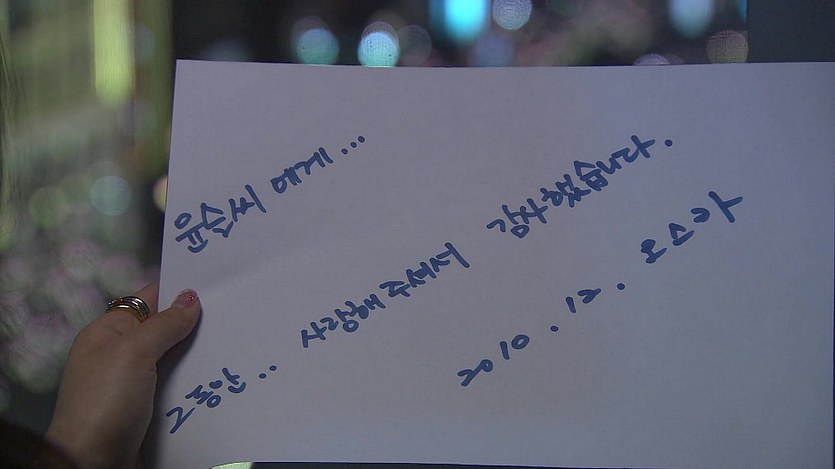 윤슬씨 에게...
그동안.. 사랑해 주셔서 감사했습니다.
2010. 12. 오스카